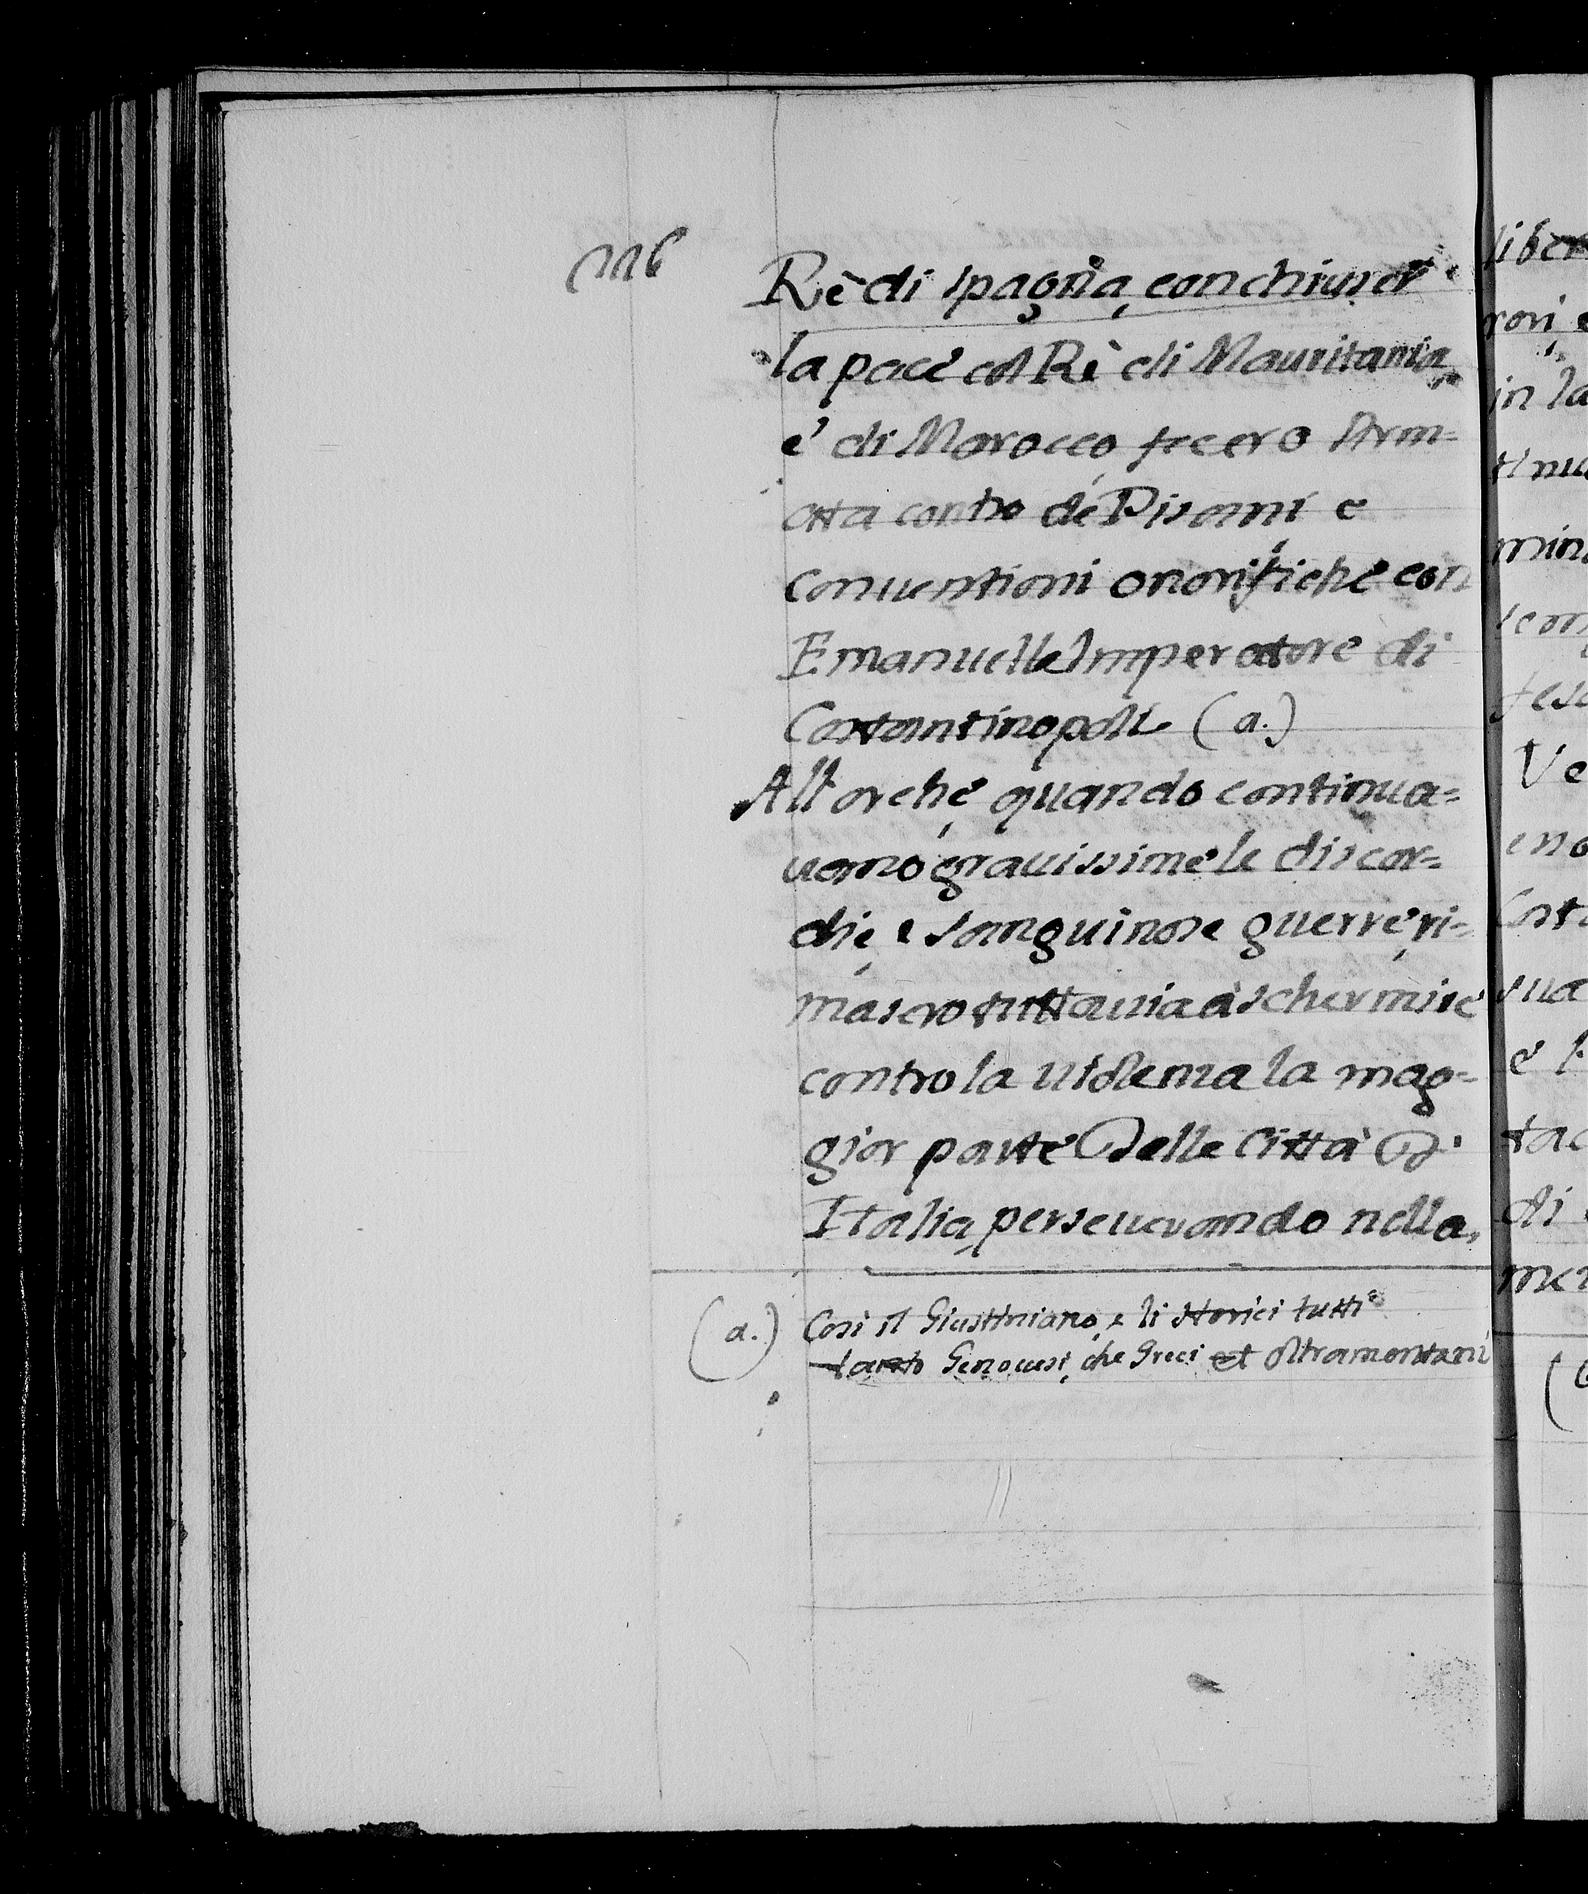 116
Rè di spagña, conchiuser
la pacè col Rè di Mauritania,
è di Marocco, fecero Arm=
ata contro dè Pisani e
Conuentioni onorifichè con
Emanuelle Imperatore di
Costantinopoli (a.)
All'orchè, quando continua=
uano grauissimè le discor=
die, e sanguinose guerrè, ri=
masero tuttauia à schermirè
contro la uiolenza la mag=
gior partè Delle Città D'
Italia, perseuerando nella,
(a.) Cosi il Giustiniano, e li storici tutti
tanto Genouesi, che Greci et oltramontani
liber
rori, e
in la
tinua
min
Ve
eno
Costa
sua
è l
tac
di
mer
(